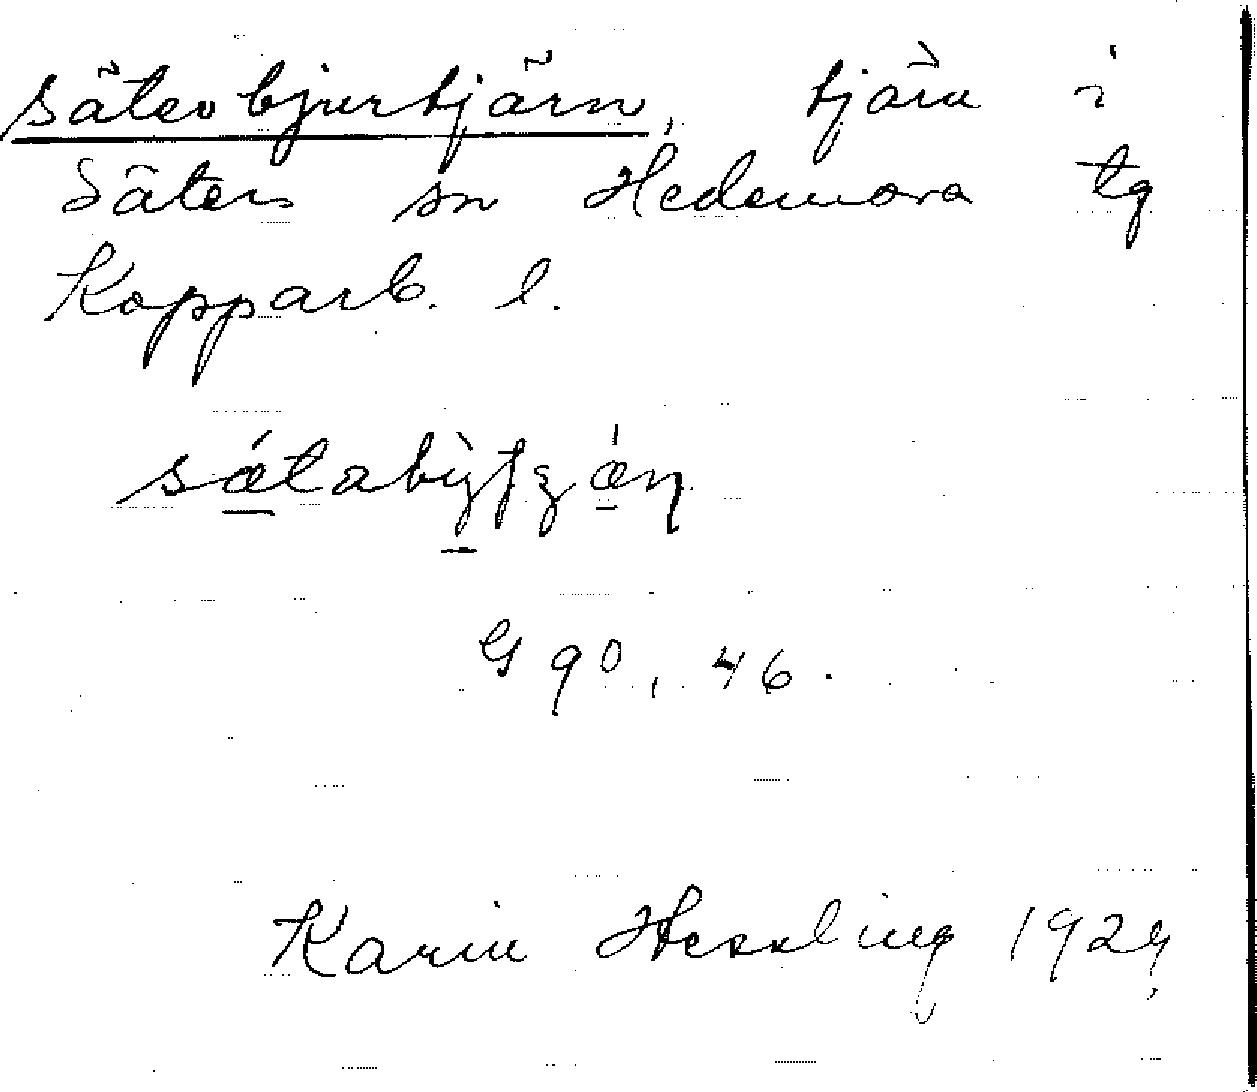 Säterbjurtjärn, tjärn i
Säters sn Hedemora tg
Kopparb. l.
G 90, 46.
Karin Hessling